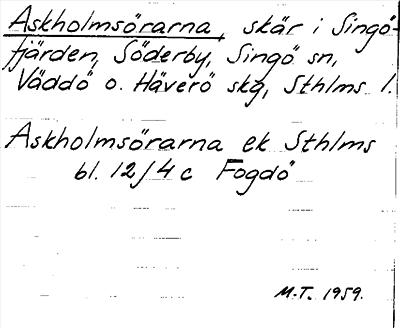 Askholmsörarna, skär i Singö-
fjärden, Söderby, Singö sn,
Väddö o. Häverö skg, Sthlms l.
Askholmsörarna ek Sthlms
bl. 12/4 c Fogdö
M.T. 1959.